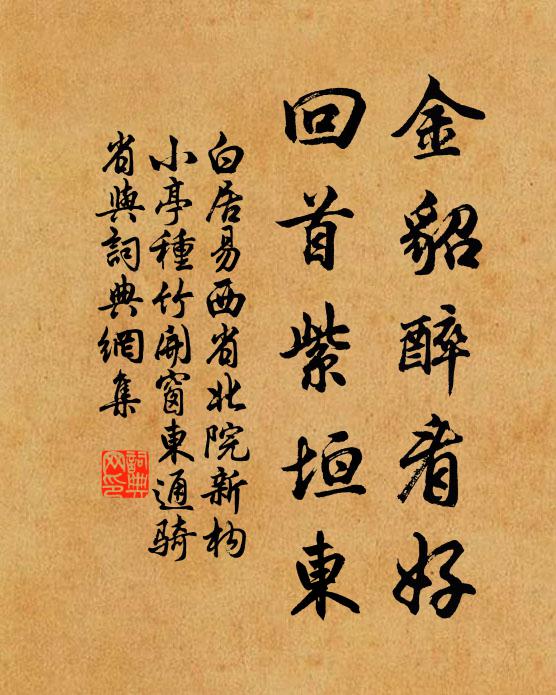 金貂醉看好
回首紫垣東
白居易西省北院新构
小亭種竹開窗東通騎
省與詞典網集
詞典
网印